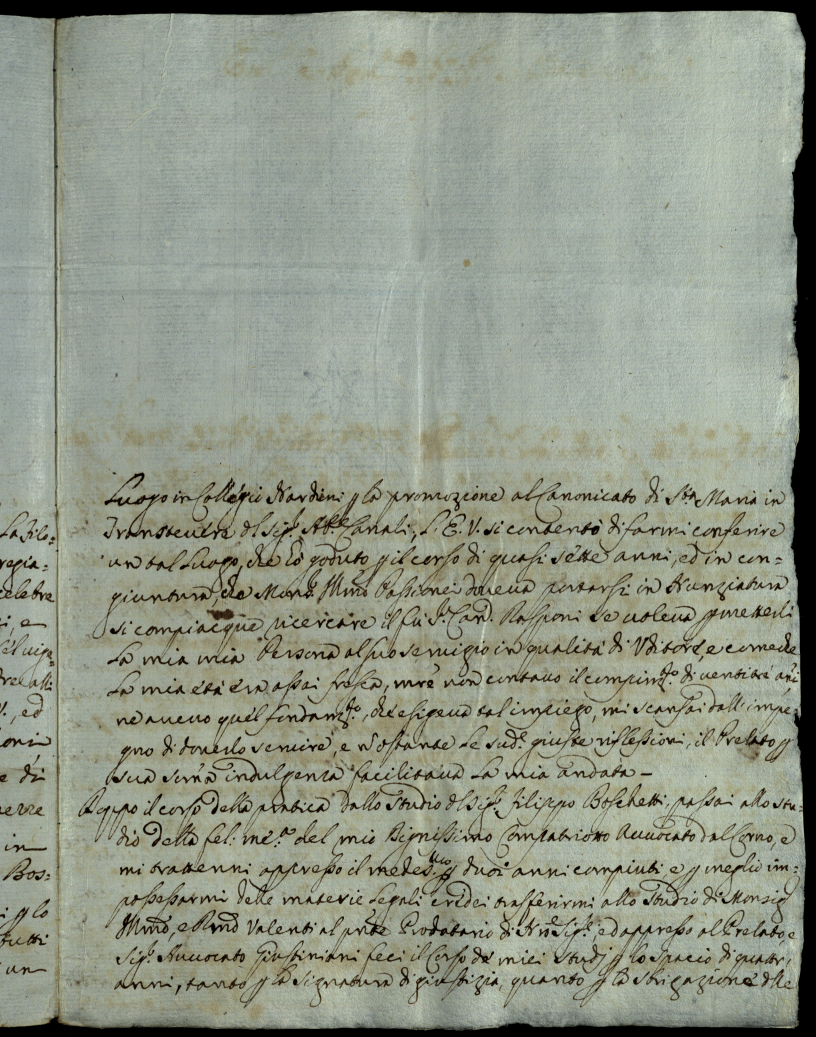 La Filo=
regia=
celebre
i, e
V., ed
e di
in
Bos=
i p lo
tutti
un
Luogo in Collegio Nardini p la promozione al Canonicato di Sta Maria in
Transtevere del Sig.r Ab.e Canali, L'E. V. si contentò di farmi conferire
un tal Luogo, che hò goduto p il corso di quasi sette anni, ed in con=
giuntura, che Mons.r Illmo Passionei doveva portarsi in Nunziatura
si compiacque ricercare il fù S.r Card. Rasponi se voleva permetterli
la mia mia Persona al suo servizio in qualità di Uditore, e come che
la mia età era assai fresca, mentre non contavo il compim.to di ventitrè an̄i
ne avevo quel fondam.to, che esigeva tal impiego, mi scansai dall'impe=
gno di doverlo servire, e n'ostante le sud.e giuste riflessioni, il Prelato p
sua som̄a indulgenza facilitava la mia andata –
Doppo il corso della pratica dallo Studio del Sig.r Filippo Boschetti, passai allo stu=
dio della fel: me: del mio Dignissimo Compatriotto Avvocato dal Corno, e
mi trattenni appresso il medesmo p duoi anni compiuti e p meglio im=
possessarmi delle materie Legali credei trasferirmi allo Studio di Monsig.r
Illmo, e Rmo Valenti al pnte Prodatario di N̄ro Sig.e, ed appresso al Prelato, e
Sig.r Avvocato Giustiniani feci il Corso de' miei studj p lo spacio di quattro
anni, tanto p la Signatura di giustizia, quanto p la strigazione delle